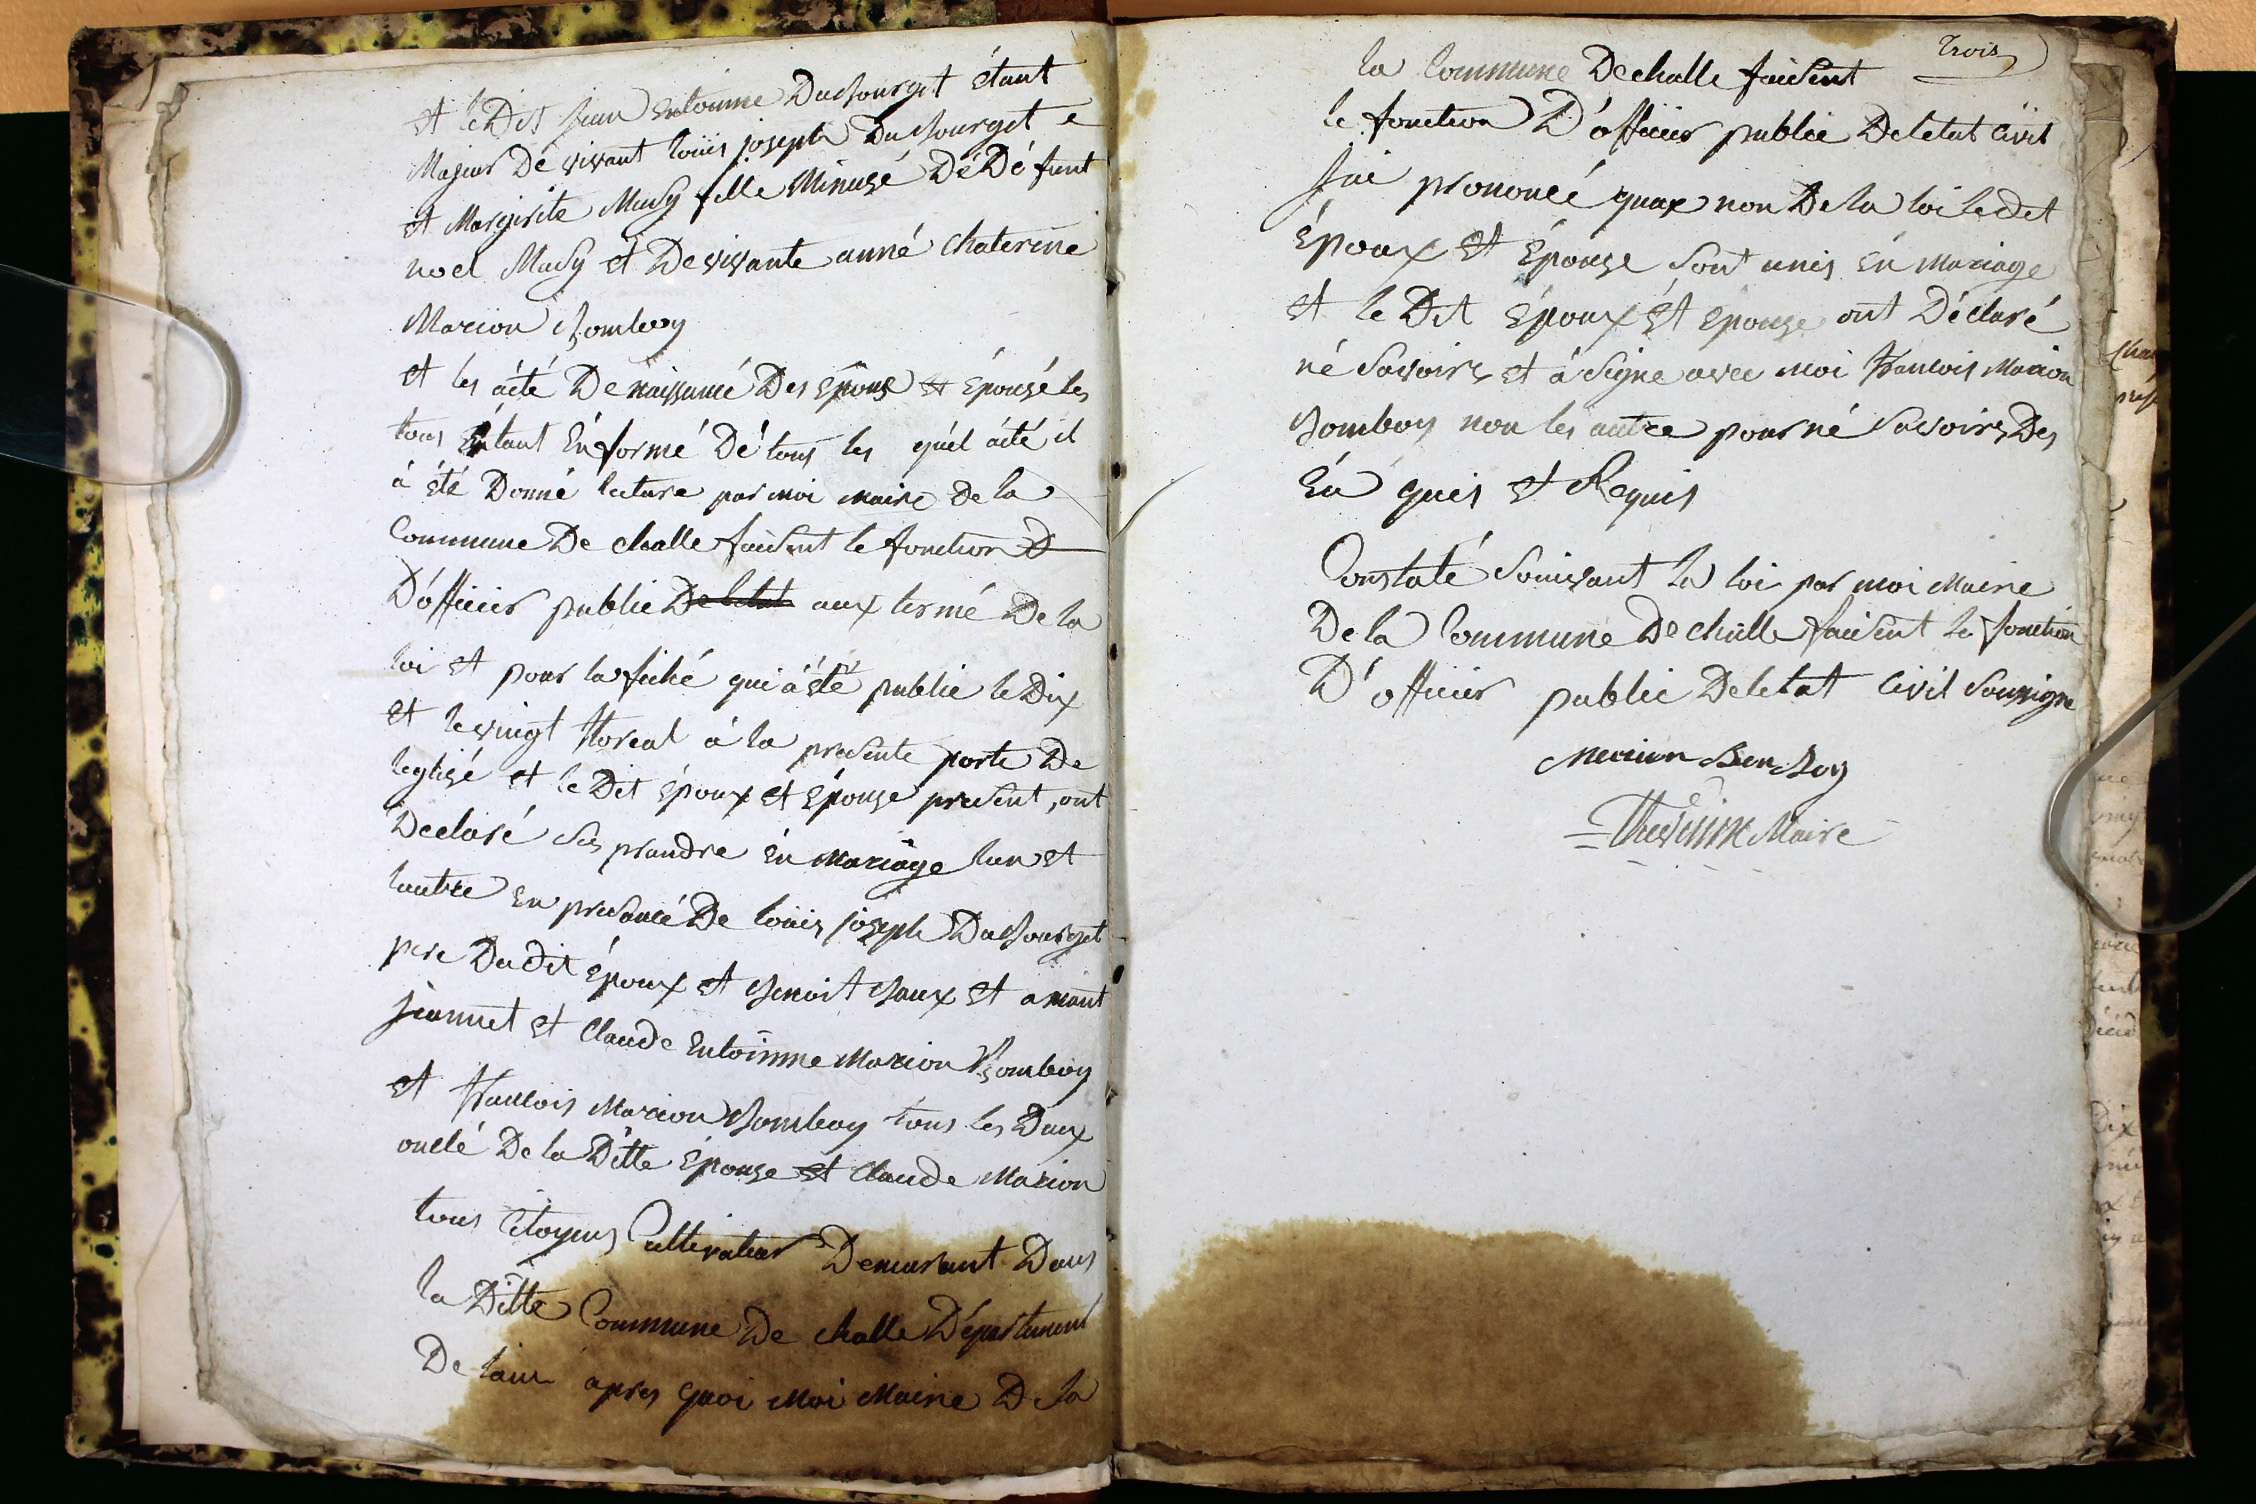 et le Dit jean entoinne Dubourget étant
Majeur De vivant loüis joseph Dubourget e
et Margirite Mudy fille Minusé Dé Défunt
noel Mudy et De vivante anné Chaterine
Marion Bomboy
et les àcté De naissancé Des Epous et Épousé les
tous étant Énformé Dé tous les quél àcté il
à été Donné lecture par moi maire De la
Commune De challe faisent le fonction D
D'officier public De letat aux termé De la
loi et pour lafiché qui à été publié le Dix
et le vingt floreal à la presente porte De
leglisé et le Dit époux et épouse present, ont
Declaré Ses prandre én mariage lun et
lautre en presancé De loüis joseph Dubourget
pere Du dit époux et Benoit Baux et amant
jeannet et Claude Entoinne Marion Bomboy
et francois Marion Bomboy tous les Deux
onclé De la Ditte épouse et Claude Marion
tous Citoyens Cultivateur Demeurant Dans
la Ditte Commune De challe Département
De lain apres quoi Moi Maire De la
Trois
la Commune De challe faisent
le fonction D'officier public De letat Civil
Jai prononcé quax non De la loi le dit
Époux et Épouse Sont unis Én mariage
et le Dit Époux Ét épouse ont Déclaré
né Savoire et à Signe avec moi francois Marion
Bomboy non les autre pour né Savoire Des
Én quis et Requis
Constaté Souivant la loi par moi Maire
De la Commune De challe faisent le fonction
D'officier public De letat Civil Soussigne
Marion Bonboy
Thevenin Maire